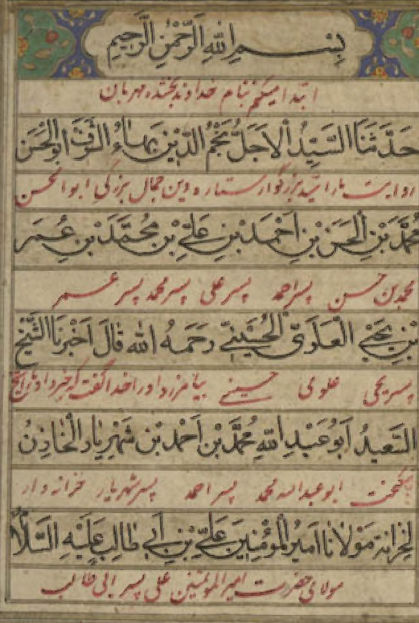 بسم الله الرحمن الرحيم
ابتدا میکنم بنام خداوند بخشنده مهربان
حدثنا السيد الاجل نجم الدين بهاء الشرف ابو الحسن
روایت ما را سید بزرگوار ستاره دین جمال بزرگی ابو الحسن
محمد بن الحسن بن احمد بن علي بن محمد بن عمر
محمد بن حسن پسر احمد پسر علی پسر محمد پسر عمر
بن يحيى العلوي الحسيني رحمه الله قال اخبرنا الشيخ
پسر یحیی علوی حسینی بیامرزاد او را خدا گفت که خبر داد ما را شیخ
السعيد ابو عبد الله محمد بن احمد بن شهريار الخازن
ابو عبدالله محمد پسر احمد پسر شهریار خزانه دار
لخزانة مولانا امير المؤمنين علي بن ابي طالب عليه السلام
مولای حضرت امیر المومنین علی پسر ابی طالب